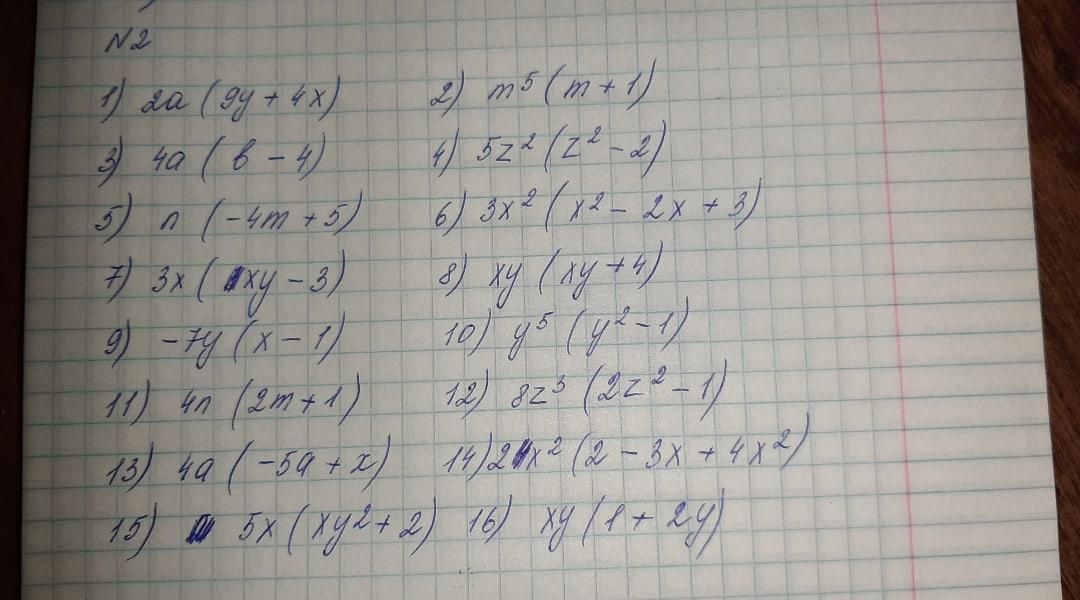 N2
1) 2a (9y + 4x) 2) m⁵ (m + 1)
3) 4a (в - 4) 4) 5z² (z² - 2)
5) n (-4m + 5) 6) 3x² (x² - 2x + 3)
7) 3x (xy - 3) 8) xy (xy + 4)
9) -7y (x - 1) 10) y⁵ (y² - 1)
11) 4n (2m + 1) 12) 8z³ (2z² - 1)
13) 4a (-5a + x) 14) 2x² (2 - 3x + 4x²)
15) 5x (xy² + 2) 16) xy (1 + 2y)